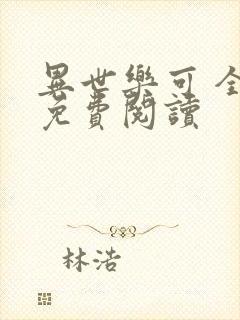 異世樂可 全
免費閱讀
林浩